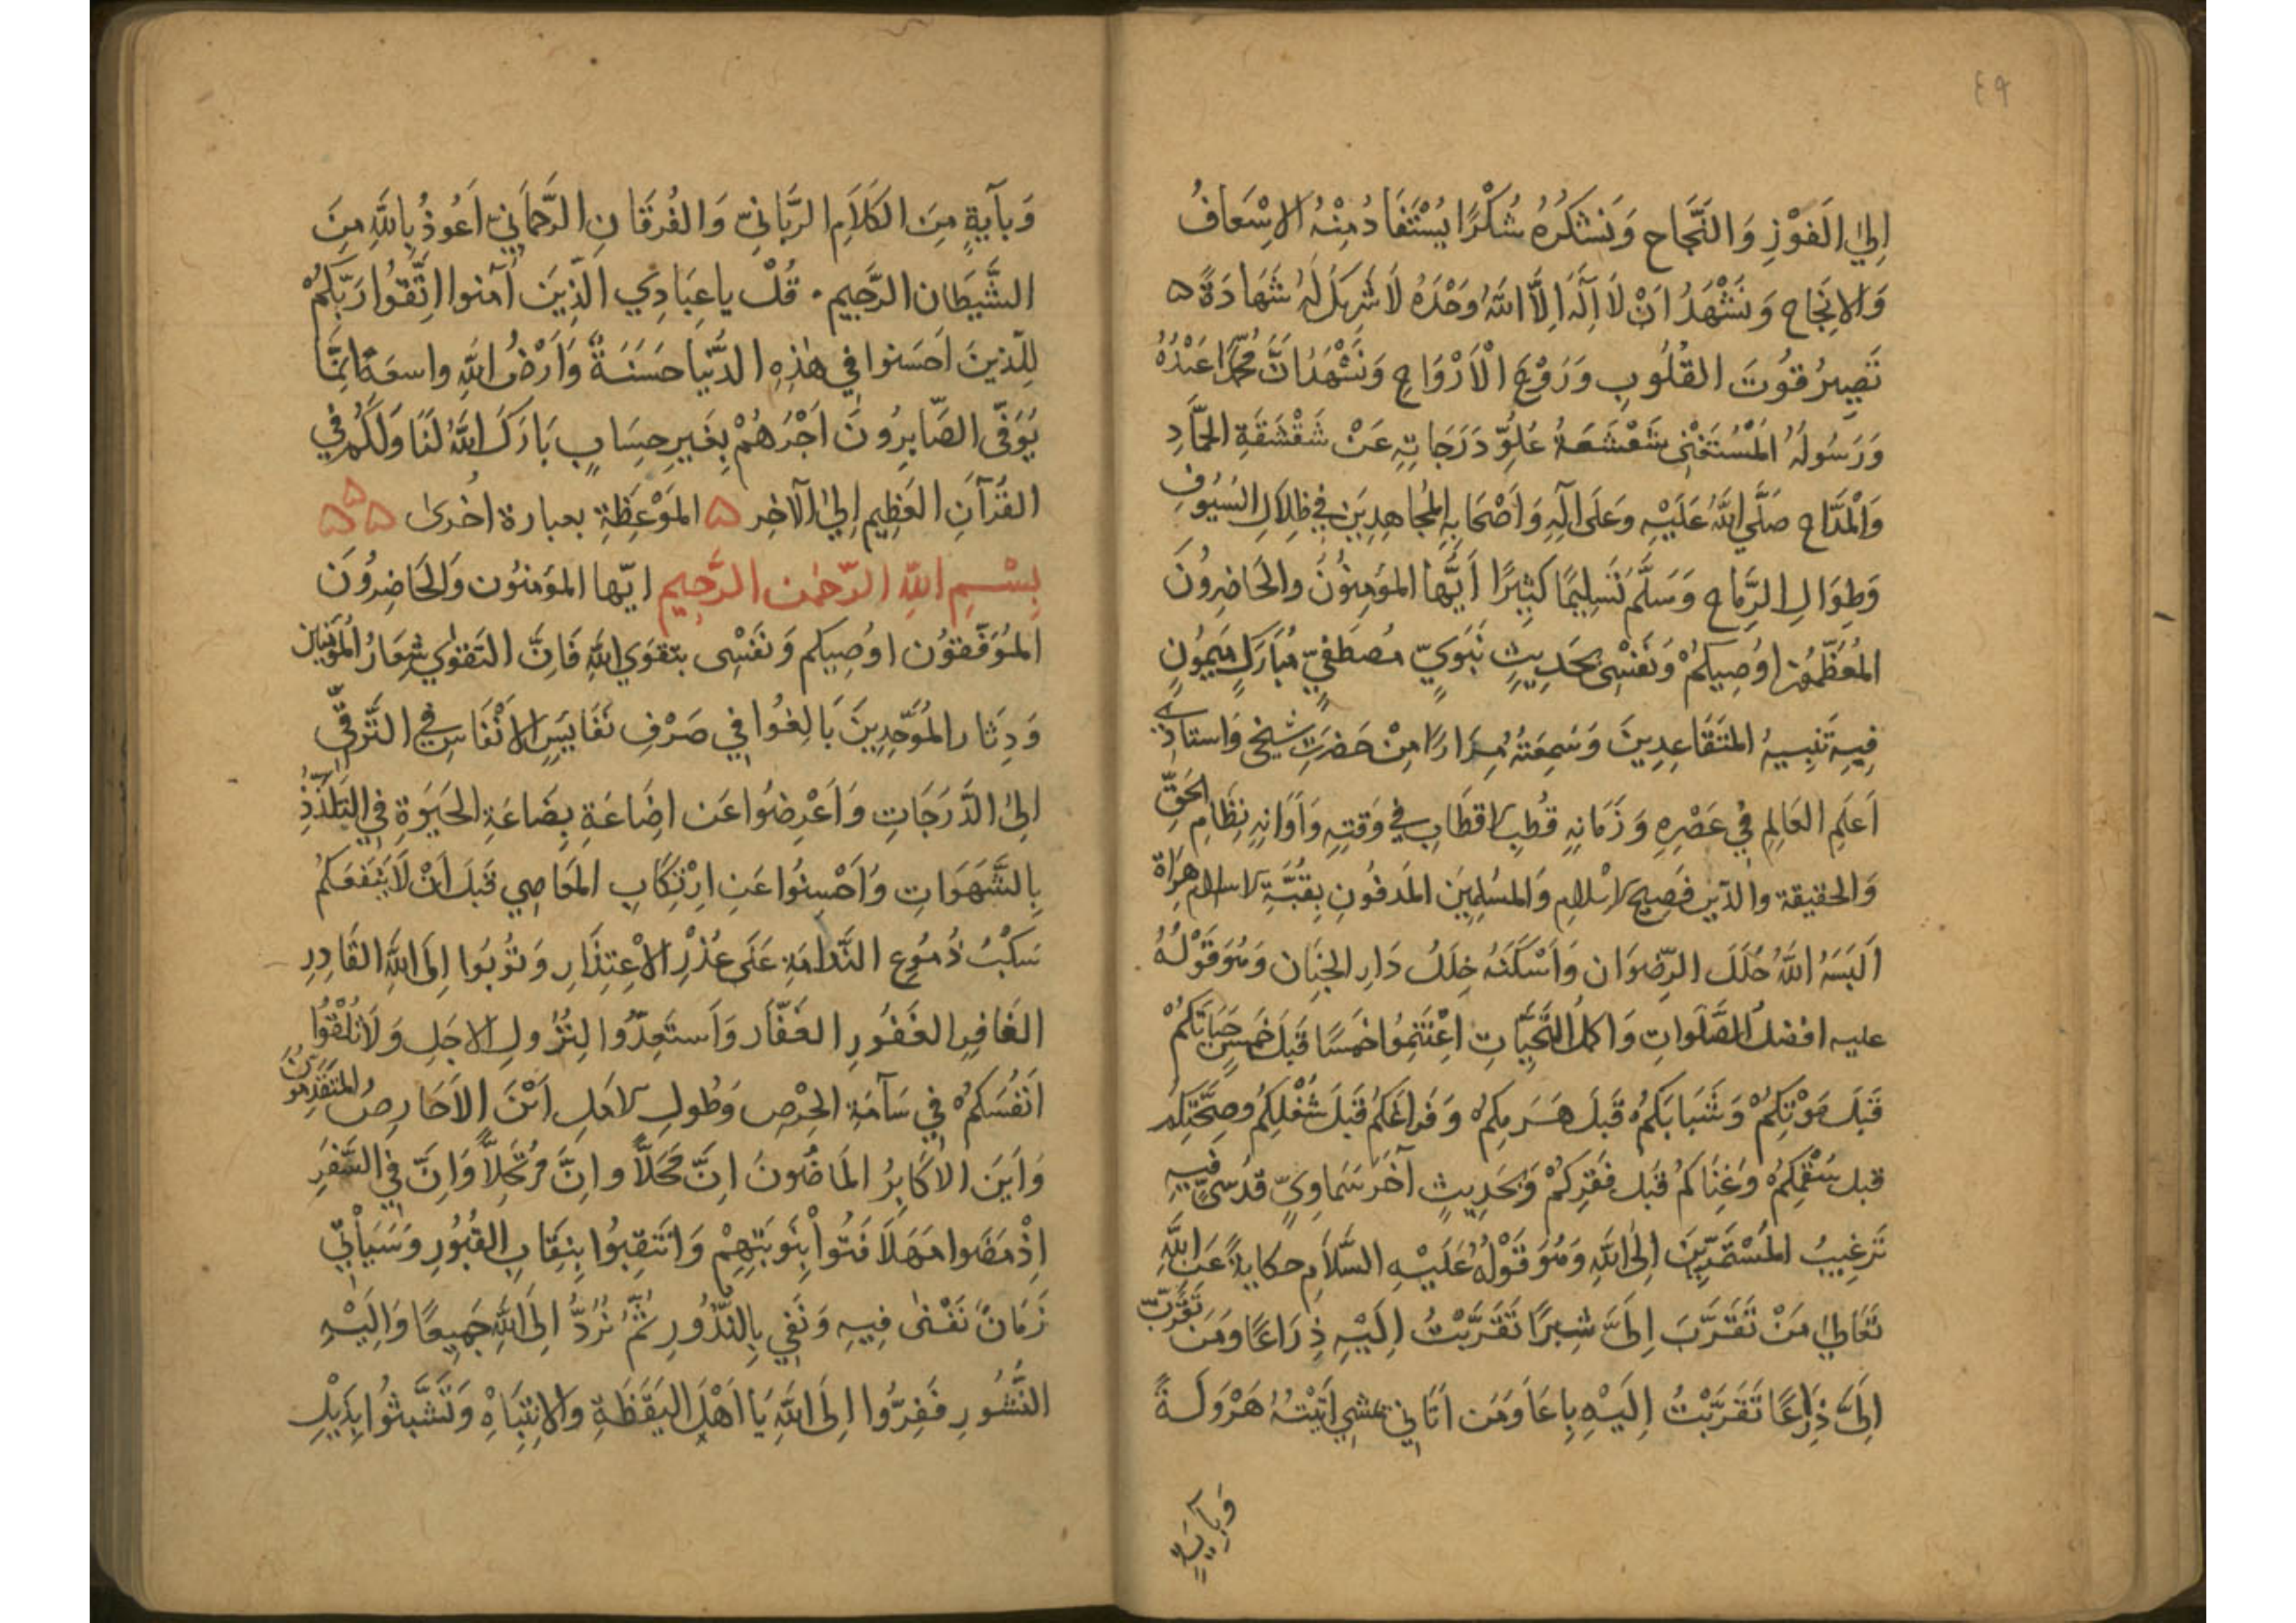 ٤٩
اِلَي الَفوْزِ وَالنَّجَاحِ وَنَشكُرُهُ شُكْرًا يُسْتَفَادُ مِنْهُ الاِسْعَافُ
وَالاِنجَاحِ وَنَشْهَدُ اَنْ لَا اِلٰهَ اِلاَّ اللّٰهُ وَحْدَهُ لَا شَرِيكَ لَهُ شَهَادَةً ه
تَصِيرُ قُوتَ القُلُوبِ وَرَوْحَ الْاَرْوَاحِ وَنَشْهَدُ اَنَّ مُحَمَّدًا عَبْدُهُ
وَرَسُولُهُ المُسْتَغنِى شَعْشَعَةُ عُلِوِّ دَرَجَاتِهِ عَنْ شَقْشَقَةِ الحَمَّادِ
وَالْمدَّاحِ صَلَّي اللّٰهُ عَلَيْهِ وَعَلَى اٰلِهِ وَاَصْحَابِهِ المُجَاهِدِينَ فِي ظِلاَلِ السُيُوُفِ
وَطِوَالِ الرِّمَاحِ وَسَلَّمَ تَسَلِيمًا كَثِيرًا اَيُّهَا المؤمِنُوُنَ والحَاضِرُونَ
المُعَظَّمُونَ اوُصِيكُمْ وَنَفْسِى بحَدِيثٍ نَبَوِيٍّ مُصطَفِيٍّ مُبَارَكٍ مَيمُونٍ
فِيهِ تَنبِيهُ المتَقَاعِدِينَ وَسَمِعتُهُ مِرَارًا مِنْ حَضرَتِ شيخى وَاستاذى
اَعلَمِ العَالِمِ فِي عَصْرِهِ وَزَمَانِهِ قُطبِ الاقطَابِ فِي وَقتِهِ وَاَوَانِهِ نِظَامِ الحَقِّ
وَالحقيقة والدّين فَصِيح الاسْلامِ وَالمسُلِمِينَ المَدفُونِ بِقُبَّةِ الاسلام هراة
اَلبَسَهُ اللّٰهُ حُلَلَ الرِّضوَان وَاَسْكَنَهُ خِلَلَ دَارِ الجِنَان وَهُوَ قَوْلُهُ
عليه افضلُ الصَّلَواتِ وَاكملُ التَّحِيَّاتِ اِغْتَنِمُوا خَمسًا قَبلَ خَمسٍ حَيَاتَكُمْ
قَبلَ مَوْتِكُمْ وَشَبَابَكُمْ قَبلَ هَرَمِكُمْ وَفَراغَكُمْ قَبلَ شُغْلِكُمْ وصِحَّتَكُمْ
قبل سُقْمِكُمْ وَغِنَاكُمْ قَبل فَقرِكُمْ وَبحَدِيثٍ آخَر سَمَاوِيٍّ قُدسِيٍّ فِيهِ
تَرغِيبُ المُسْتَمَدِّينَ اِلَى اللّٰهِ وَهُوَ قَوْلُهُ عَلَيْهِ السَّلاَمِ حكايةً عَنِ اللّٰهِ
تَعَالىٰ مَنْ تَقَرَّبَ اِلَىَّ شِبرًا تَقَرَّبْتُ اِلَيْهِ ذِرَاعًا وَمَن تَقَرَّبَ
اِلَىَّ ذِرَاعًا تَقَرَّبْتُ اِلَيْهِ بَاعًا وَمَن اَتَانِي يمشى اَتَيْتُهُ هَرْوَلَةً
وَبآيةٍ
وَبآيَةٍ مِنَ الكَلَامِ الرَّبَّانِىّ وَالفُرقَانِ الرَّحمَانِيِّ اَعُوذُ بِاللّٰهِ مِنَ
الشَّيطَان الرَّجِيم . قُلْ يا عِبَادِي الذِينَ اٰمَنوا اتَّقُوا رَبَّكُمْ
لِلَّذينَ اَحسَنوا فِي هٰذِهِ الدُّنيا حَسَنَةٌ وَاَرْضُ اللّٰهِ واسعَةٌ اِنَّمَا
يُوَفَّى الصَّابِرُونَ اَجْرَهُمْ بِغَيرِ حِسَابٍ بَارَكَ اللّٰهُ لَنَا وَلَكُم فِي
القُرآنِ العَظِيمِ اِلَىٰ الآخِر ه المَوْعِظَةِ بعبارة اُخرىٰ ه ه ه
بِسْمِ اللّٰهِ الرَّحمٰن الرَّحِيم ايّها المؤمنوُن وَالحَاضِروُنَ
المُوَفَّقوُن اوُصِيكم وَنفَسِى بتقوَي اللّٰهِ فَاِنَّ التَقوٰي شِعَارُ المُؤْمنين
وَدِثَار المُوَحِّدِينَ بَالِغُوا فِي صَرْفِ نَفَايسَ الاَنْفَاسِ فِي التَّرقِّى
اِلىٰ الدَّرَجَاتِ وَاَعْرِضوُا عَن اِضَاعَةِ بِضَاعَةِ الحَيوٰةِ فِي التَلذُّذِ
بِالشَّهَوَاتِ وَاَحْسِنوُا عَنِ ارْتِكَابِ المعَاصِي قَبلَ اَنْ لَا يَنفَعَكُمْ
سَكْبُ دُمُوعِ النَّدَامَةِ عَلَى عُذْرِ الاِعْتِذَارِ وَتُوبُوا اِلَى اللّٰهِ القَادِرِ
الغَافِرِ الغَفُورِ الغَفَّار وَاَستَعِدُّوا لِنُزُولِ الاجَلِ وَلَا تُلقُوا
اَنفُسَكُمْ فِي سَآمَةِ الحِرْصِ وَطُولِ الامَلِ اَيْنَ الاَحَارِصُ المتقَدِّمُونَ
وَاَينَ الاَكَابِرُ المَاضُونَ اِنَّ مَحَلاًّ وانَّ مُرتَحَلاًّ وَاِنَّ فِي السَّفَرِ
اِذْ مَضَوا مَهَلًا فَتُوا بِنَوبَتِهِمْ وَانتَقِبُوا بِنِقَابِ القُبُورِ وَسَيَأتِىْ
زَمَانٌ نَفْنٰى فِيهِ وَنَفِي بِالنُّذُورِ ثُمَّ نُرَدُّ اِلَى اللّٰهِ جَمِيعًا وَاِلَيْهِ
النُّشُورِ فَفِرُّوا اِلَى اللّٰهِ يَا اَهْلَ اليَقَظَةِ وَالاِنتِبَاهْ وَتَشَّبثُوا بِذَيْلِ